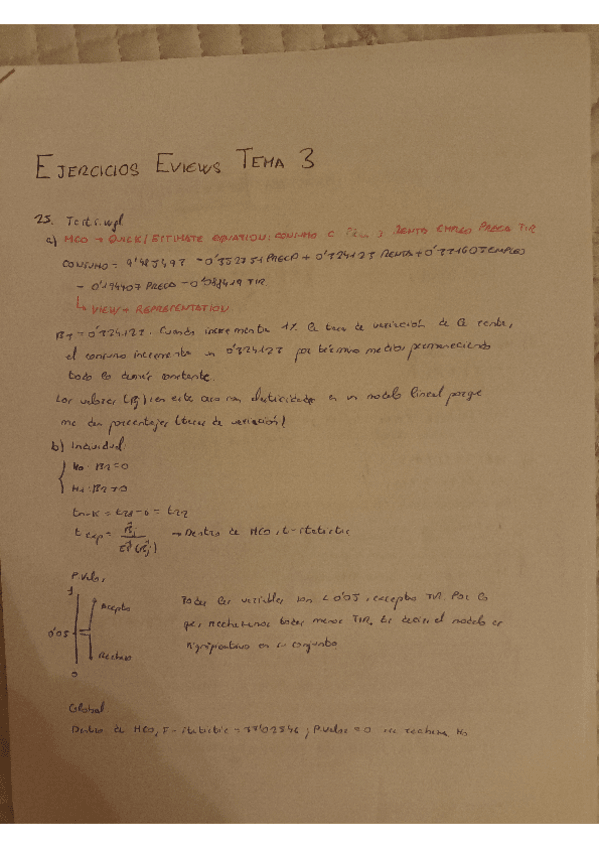 EJERCICIOS EVIEWS TEMA 3
25.
a) MCO → QUICK/ESTIMATE EQUATION: CONSUMO C RENTA EMPLEO PRECO TIR
CONSUMO = PRECA + 0'324127 RENTA + EMPLEO
- 0'194407 PRECO - TIR
↳ VIEW → REPRESENTATION
= 0'324127. Cuando incrementa 1% la tasa de variación de la renta,
el consumo incrementa un 0'324127 por término medio permaneciendo
todo lo demás constante.
Los valores en este caso son elasticidades en un modelo lineal porque
me dan porcentajes (tasas de variación)
b) Individual:
=0
≠0
tn-k = t28-6 = t22
t exp = → Dentro de MCO, t-statistic
P.Valor
1
Acepto
0'05
Rechazo
0
Todas las variables son < 0'05, excepto TIR. Por lo
que, rechazamos todas menos TIR. Es decir, el modelo es
significativo en su conjunto
Global.
Dentro de MCO, F-statistic = ; P.valor = 0 se rechaza Ho